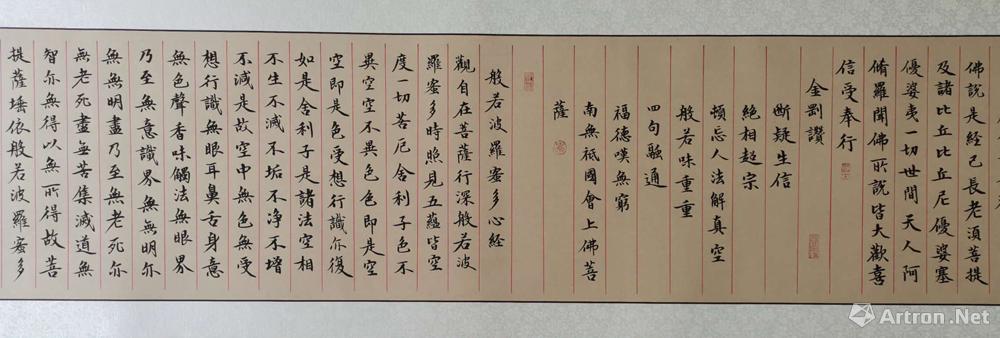 佛説是經已長老須菩提
及諸比丘比丘尼優婆塞
優婆夷一切世間天人阿
脩羅聞佛所説皆大歡喜
信受奉行
金剛讚
斷疑生信
絶相超宗
頓忘人法解真空
般若味重重
四句融通
福德嘆無窮
南無祇園會上佛菩
薩
般若波羅蜜多心經
觀自在菩薩行深般若波
羅蜜多時照見五蘊皆空
度一切苦厄舍利子色不
異空空不異色色即是空
空即是色受想行識亦復
如是舍利子是諸法空相
不生不滅不垢不净不增
不減是故空中無色無受
想行識無眼耳鼻舌身意
無色聲香味觸法無眼界
乃至無意識界無無明亦
無無明盡乃至無老死亦
無老死盡無苦集滅道無
智亦無得以無所得故菩
提薩埵依般若波羅蜜多
Artron.Net